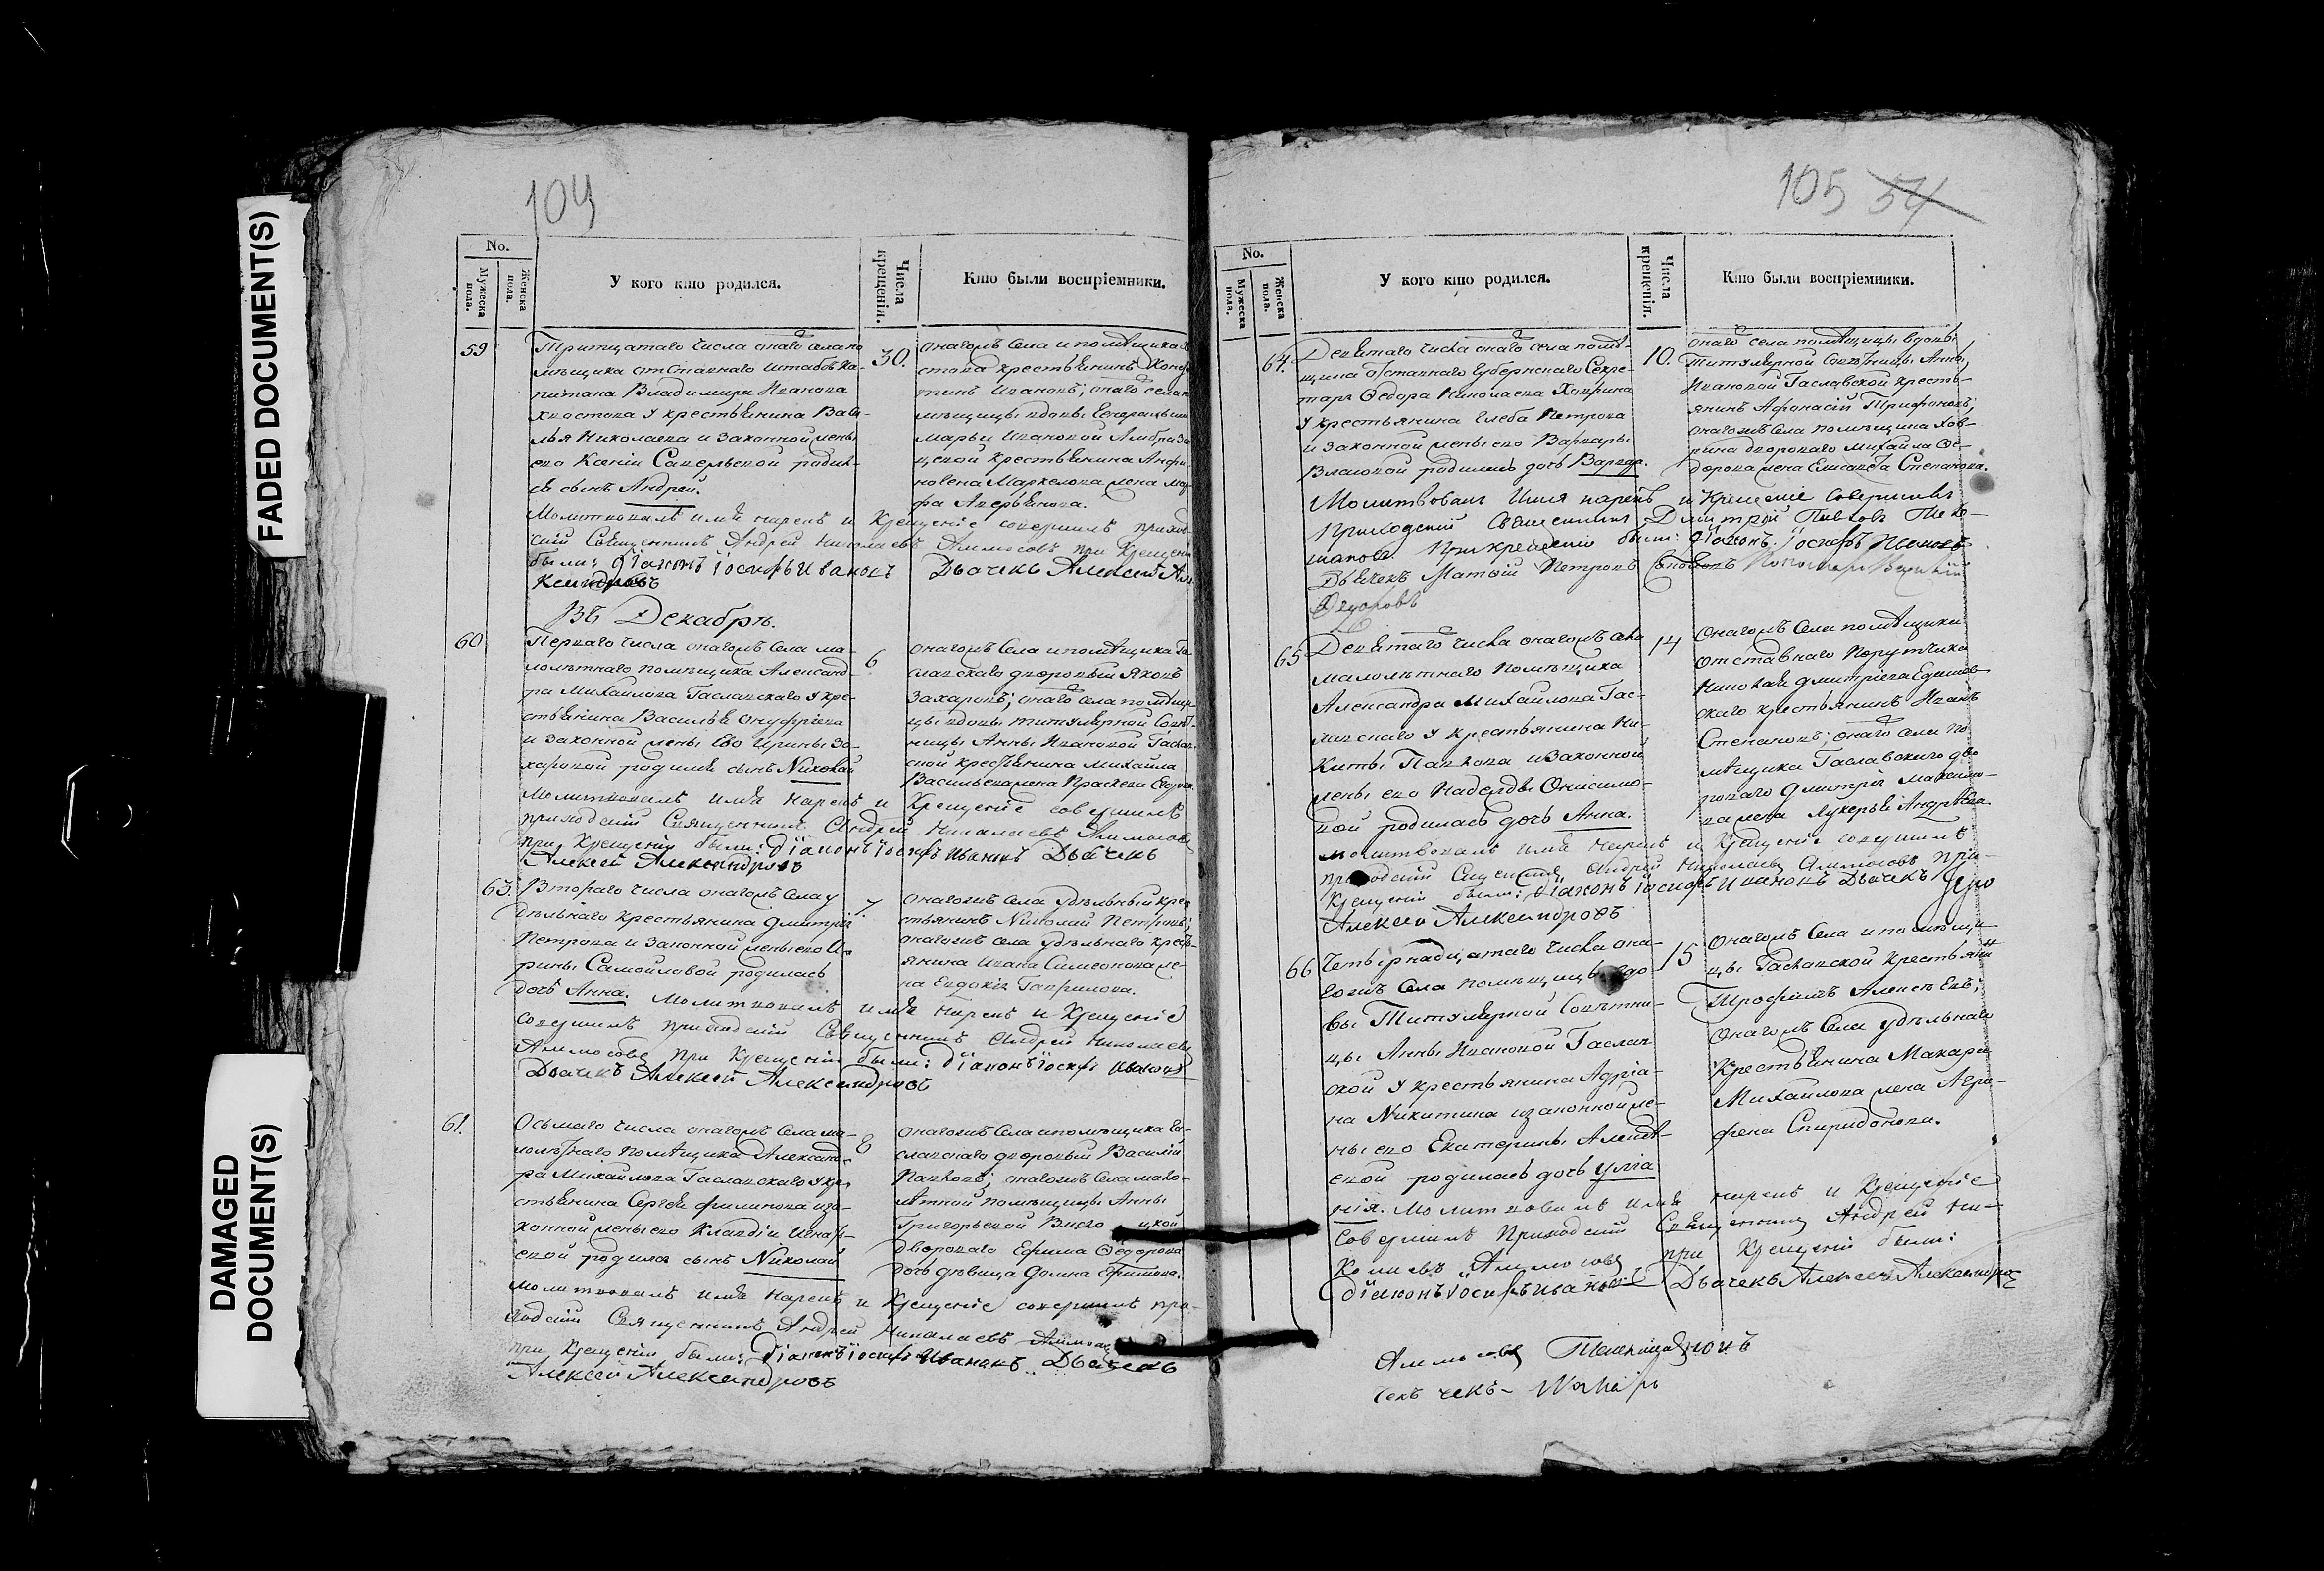 FADED DOCUMENT(S)
DAMAGED DOCUMENT(S)
104
No.
Мужеска пола.
Женска пола.
У кого кто родился.
Числа крещенія.
Кто были воспріемники.
59
Тритцатаго числа онаго села по
мѣщика отставнаго Штабъ Ка-
питана Владимира Иванова
Хвостова у крестьянина Васи-
лья Николаева и законной жены
его Ксеніи Савельевой родил-
ся сынъ Андрей.
30.
онагожъ села и помѣщика Хво
стова крестьянинъ
Ивановъ; онаго села по
мѣщицы вдовы
Марьи Ивановой
цкой крестьянина
Маркелова жена Мар
фа Аверьянова.
Молитвовалъ имя нарекъ и Крещеніе совершилъ приход
скій Священникъ Андрей Николаевъ Аммосовъ при Крещеніи
были: діаконъ Іосифъ Ивановъ Дьячекъ Алексей Але
ксандровъ
Въ Декабрѣ.
60
Перваго числа онагожъ села ма-
лолѣтнаго помѣщика Александ-
ра Михайлова Гаславскаго у кре-
стьянина Василья Онуфріева
и законной жены Его Ирины За-
харовой родился сынъ Николай
6
онагожъ села и помѣщика Га
славскаго дворовый Яковъ
Захаровъ; онаго села помѣщи
цы вдовы титулярной Совѣт-
ницы Анны Ивановой Гаслав
ской крестьянина Михайла
Васильева жена Прасковья
Молитвовалъ имя нарекъ и Крещеніе совершилъ
приходскій Священникъ Андрей Николаевъ Аммосовъ
при Крещеніи были: діаконъ Іосифъ Ивановъ Дьячекъ
Алексей Александровъ
63
Втораго числа онагожъ села у
дѣльнаго крестьянина Дмитрія
Петрова и законной жены его И-
рины Самойловой родилась
дочь Анна.
7.
онагожъ села удѣльный кре
стьянинъ Николай Петровъ;
онагожъ села удѣльнаго кресть-
янина Ивана Симеонова же-
на Евдокія Гаврилова.
Молитвовалъ имя нарекъ и Крещеніе
совершилъ приходскій Священникъ Андрей Николаевъ
Аммосовъ при Крещеніи были: діаконъ Іосифъ Ивановъ
Дьячекъ Алексей Александровъ
61.
Осьмаго числа онагожъ села ма-
лолѣтнаго помѣщика Александ-
ра Михайлова Гаславскаго у кре
стьянина Сергея Филипова и за-
конной жены его Клавдіи Игнать-
евой родился сынъ Николай
8
онагожъ села и помѣщика Га-
славскаго дворовый Василій
Павловъ; онагожъ села мало-
лѣтной помѣщицы Анны
Григорьевой
двороваго Ефима Ѳедорова
дочь дѣвица Домна Ефимова.
Молитвовалъ имя нарекъ и Крещеніе совершилъ при-
ходскій Священникъ Андрей Николаевъ Аммосовъ
при Крещеніи были: діаконъ Іосифъ Ивановъ Дьячекъ
Алексей Александровъ
105 54
No.
Мужеска пола.
Женска пола.
У кого кто родился.
Числа крещенія.
Кто были воспріемники.
64.
Девятаго числа онаго села помѣ-
щика отставнаго Губернскаго Секре-
таря Ѳедора Николаева Ховрина
у крестьянина Глеба Петрова
и законной жены его Варвары
Власовой родилась дочь Варвара.
10.
онаго села помѣщицы вдовы
Титулярной Совѣтницы Анны
Ивановой Гаславской кресть-
янинъ Афонасій Трифоновъ;
онагожъ села помѣщика Хов-
рина двороваго Михайла Ѳе-
дорова жена Елисавета Степанова.
Молитвовалъ имя нарекъ и Крещеніе совершилъ
Приходскій Священникъ Дмитрій
При крещеніи были: діаконъ Іосифъ Ивановъ
Дьячекъ Матвій Петровъ Пономарь
Ѳедоровъ
65
Девятаго числа онагожъ села
малолѣтнаго помѣщика
Александра Михайлова Гас-
лавскаго у крестьянина Ни-
киты Павлова и законной
жены его Надежды Онисимо-
вой родилась дочь Анна.
14
онагожъ села помѣщика
отставнаго Порутчика
Николая Дмитріева
скаго крестьянинъ Иванъ
Степановъ; онаго села по
мѣщика Гаславского дво
роваго Дмитрія Максимо-
ва жена Лукерья Андрѣева
Молитвовалъ имя нарекъ и Крещеніе совершилъ
приходскій Священникъ Андрей Николаевъ Аммосовъ при-
Крещеніи были: діаконъ Іосифъ Ивановъ Дьячекъ
Алексей Александровъ
66
Четырнадцатаго числа она-
гожъ села помѣщицы вдо
вы Титулярной Совѣтни-
цы Анны Ивановой Гаслав
ской у крестьянина Адріа-
на Никитина и законной же-
ны его Екатерины Алексѣ-
евой родилась дочь Уліа
нія.
15
онагожъ села и помѣщи
цы Гаславской крестьянинъ
Трофимъ Алексѣевъ;
онагожъ села удѣльнаго
крестьянина Макара
Михайлова жена Агра-
фена Спиридонова.
Молитвовалъ имя нарекъ и Крещеніе
совершилъ приходскій Священникъ Андрей Ни-
колаевъ Аммосовъ при Крещеніи были:
діаконъ Іосифъ Ивановъ Дьячекъ Алексей Александровъ